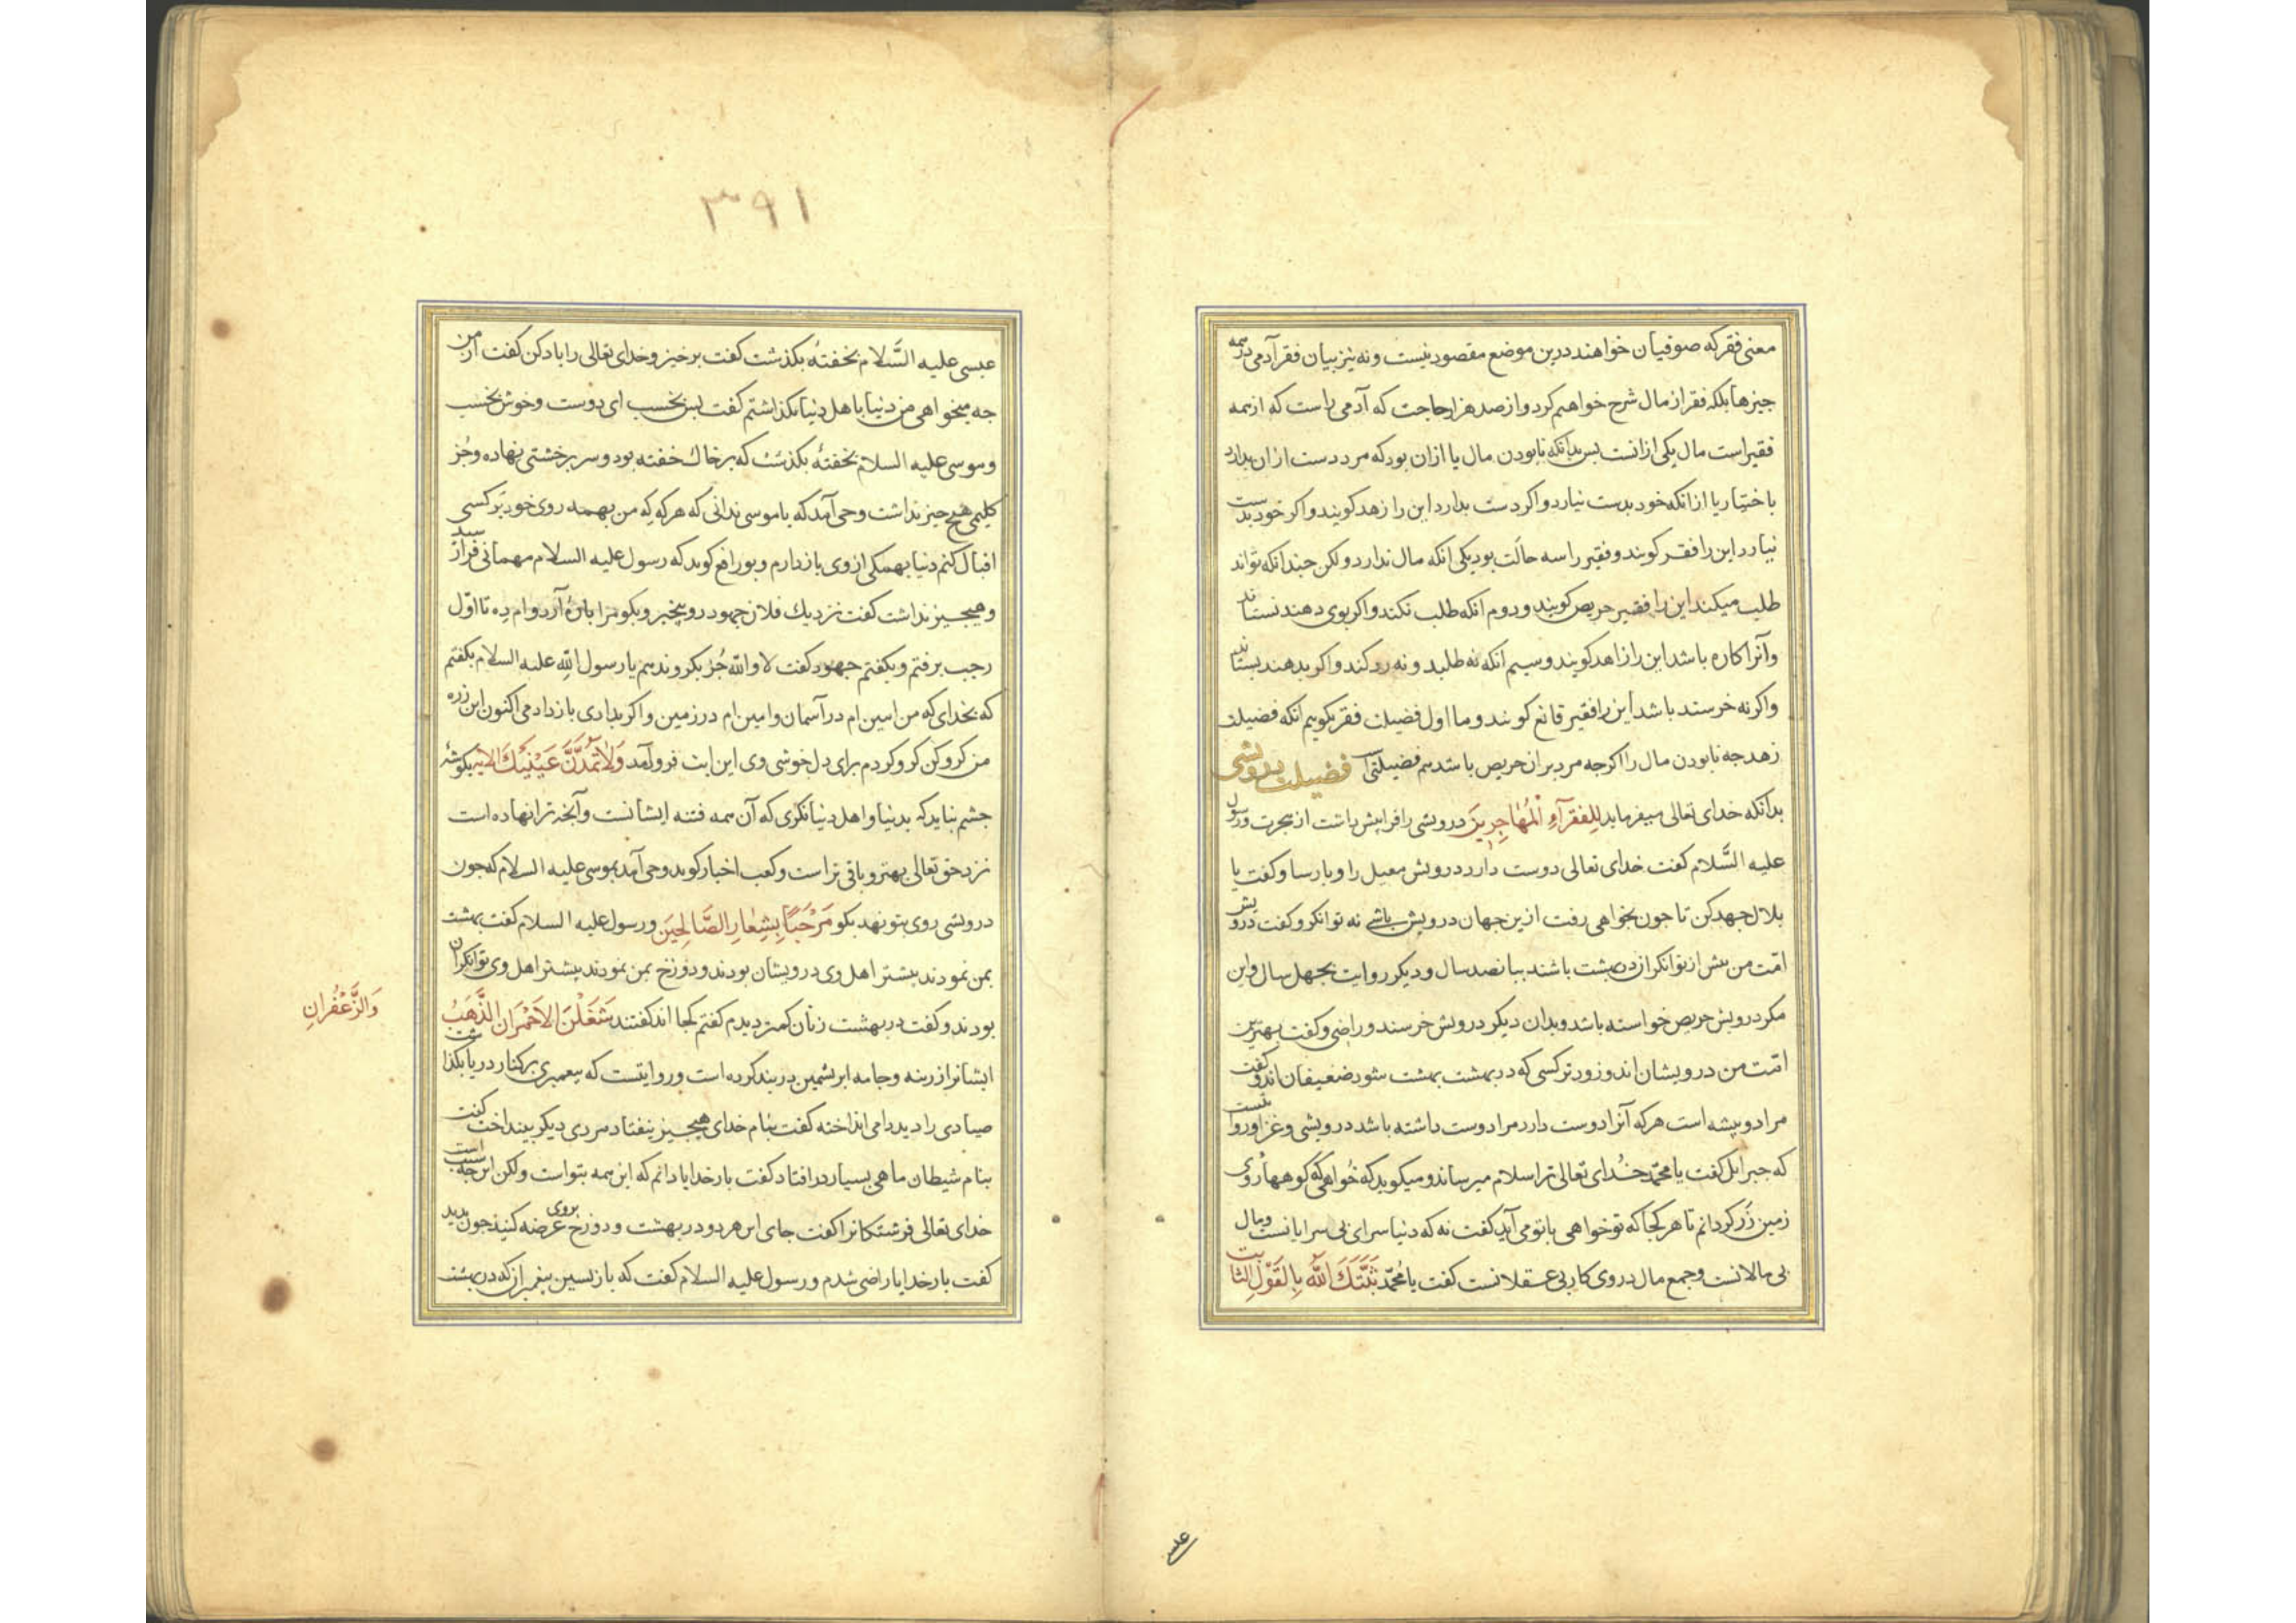 معنی فقر که صوفیان خواهند درین موضع مقصود نیست و نه نیز بیان فقر آدمی در همه
جیزها بلکه فقر از مال شرح خواهیم کرد و از صد هزار حاجت که آدمی راست که از همه
فقیر است مال یکی ازانست بس بدانکه نابودن مال یا ازان بود که مرد دست ازان بدارد
باختیار یا ازانکه خود بدست نیارد و اکر دست بدارد این را زهد کویند و اکر خود بدست
نیارد این را فقر کویند و فقیر را سه حالت بود یکی انکه مال ندارد ولکن جندانکه تواند
طلب میکند این را فقیر حریص کویند و دوم انکه طلب نکند و اکر بوی دهند نستاند
وآنرا کاره باشد این را زاهد کویند و سیم انکه نه طلبد و نه رد کند و اکر بدهند بستاند
و اکر نه خرسند باشد این را فقیر قانع کویند و ما اول فضیلت فقر بکوییم آنکه فضیلت
زهد جه نابودن مال را اکرجه مرد بران حریص باشد هم فضیلتی است فضیلت درویشی
بدانکه خدای تعالی میفرماید لِلفقرآءِ المُهاجِرِینَ درویشی را فرا پیش داشت از هجرت و رسول
علیه السَّلام کفت خدای تعالی دوست دارد درویش معیل را و بارسا و کفت یا
بلال جهد کن تا جون بخواهی رفت ازین جهان درویش باشی نه توانکر و کفت درویش
امّت من بیش از توانکر از در بهشت باشند ببانصد سال و دیکر روایت بجهل سال و این
مکر درویش حریص خواسته باشد و بدان دیکر درویش خرسند و راضی و کفت بهترین
امّت من درویشان اند و زودتر کسی که در بهشت بهشت شود ضعیفان اند و کفت
مرا دو بیشه است هرکه آنرا دوست دارد مرا دوست داشته باشد درویشی و غزا و روایتست
که جبرایل کفت یا محمّد خدای تعالی ترا سلام میرساند و میکوید که خواهی که کوهها روی
زمین زر کردانم تا هر کجا که تو خواهی با تو می آید کفت نه که دنیا سرای بی سرایانست و مال
بی مالانست و جمع مال در وی کار بی عقلانست کفت یا مُحمّد ثَبَّتَكَ اللّٰه بِالقَوْلِ الثَّابت
۳۹۱
عیسی علیه السَّلام بخفتهٔ بکذشت کفت برخیز و خدای تعالی را یاد کن کفت از من
جه میخواهی من دنیا باهل دنیا بکذاشتم کفت بس بخسب ای دوست و خوش بخسب
و موسی علیه السلام بخفتهٔ بکذشت که برخاك خفته بود و سر بر خشتی نهاده وجُز
کلیمی هیج جیز نداشت وحی آمد که یا موسی ندانی که هرکه که من بهمه روی خود بر کسی
اقبال کنم دنیا بهمکی ازوی بازدارم و بو رافع کوید که رسول علیه السلام مهمانی فراز رسید
و هیجیز نداشت کفت نزدیك فلان جهود رو بخیبر و بکو مرا بارهٔ آرد وام ده تا اوّل
رجب برفتم و بکفتم جهود کفت لا واللّٰه جُز بکرو ندهم با رسول اللّٰهِ علیه السلام بکفتم
که بخدای که من امین ام در آسمان و امین ام در زمین و اکر بدادی بازدادمی اکنون این زره
من کرو کن کرو کردم برای دل خوشی وی این ایت فرو آمد وَلاتَمُدَّنَّ عَینَیكَ الایه بکوشهٔ
جشم نباید که بدنیا و اهل دنیا نکری که آن همه فتنه ایشانست و آنجه ترا نهاده است
نزد حق تعالی بهتر و باقی تر است و کعب اخبار کوید وحی آمد بموسی علیه السلام که جون
درویشی روی بتو نهد بکو مَرْحَبًا بِشِعارِ الصَّالِحینَ و رسول علیه السلام کفت بهشت
بمن نمودند بیشتر اهل وی درویشان بودند و دوزخ بمن نمودند بیشتر اهل وی توانکران
بودند و کفت در بهشت زنان کمتر دیدم کفتم کجا اند کفتند شَغَلَهُنَ الاَحْمَرانِ الذَّهَبُ
وَالزَّعْفَرانِ
ایشانرا زرینه و جامه ابریشمین دربند کرده است و روایتست که بیغمبری برکنار دریا بکذشت
صیادی را دید دامی انداخته کفت بنام خدای هیجیز نیفتاد مردی دیکر بینداخت کفت
بنام شیطان ماهی بسیار درافتاد کفت بارخدایا دانم که این همه بتو است ولکن این جه سبب است
خدای تعالی فرشتکانرا کفت جای این هر دو در بهشت و دوزخ بروی عرضه کنید جون بدید
کفت بارخدایا راضی شدم و رسول علیه السلام کفت که بازبسین بیغمبر از که در بهشت